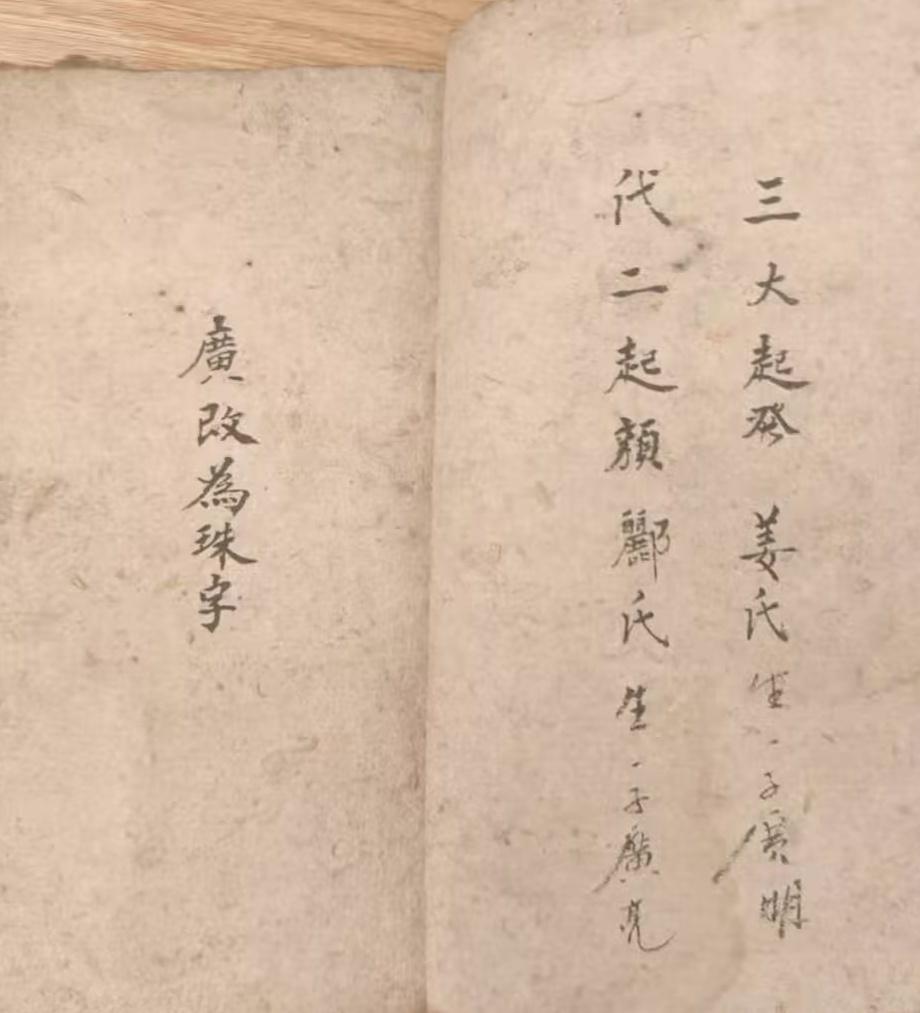 三大起發 姜氏生一子廣明
代二起顏 酈氏生一子廣亮
廣改為珠字